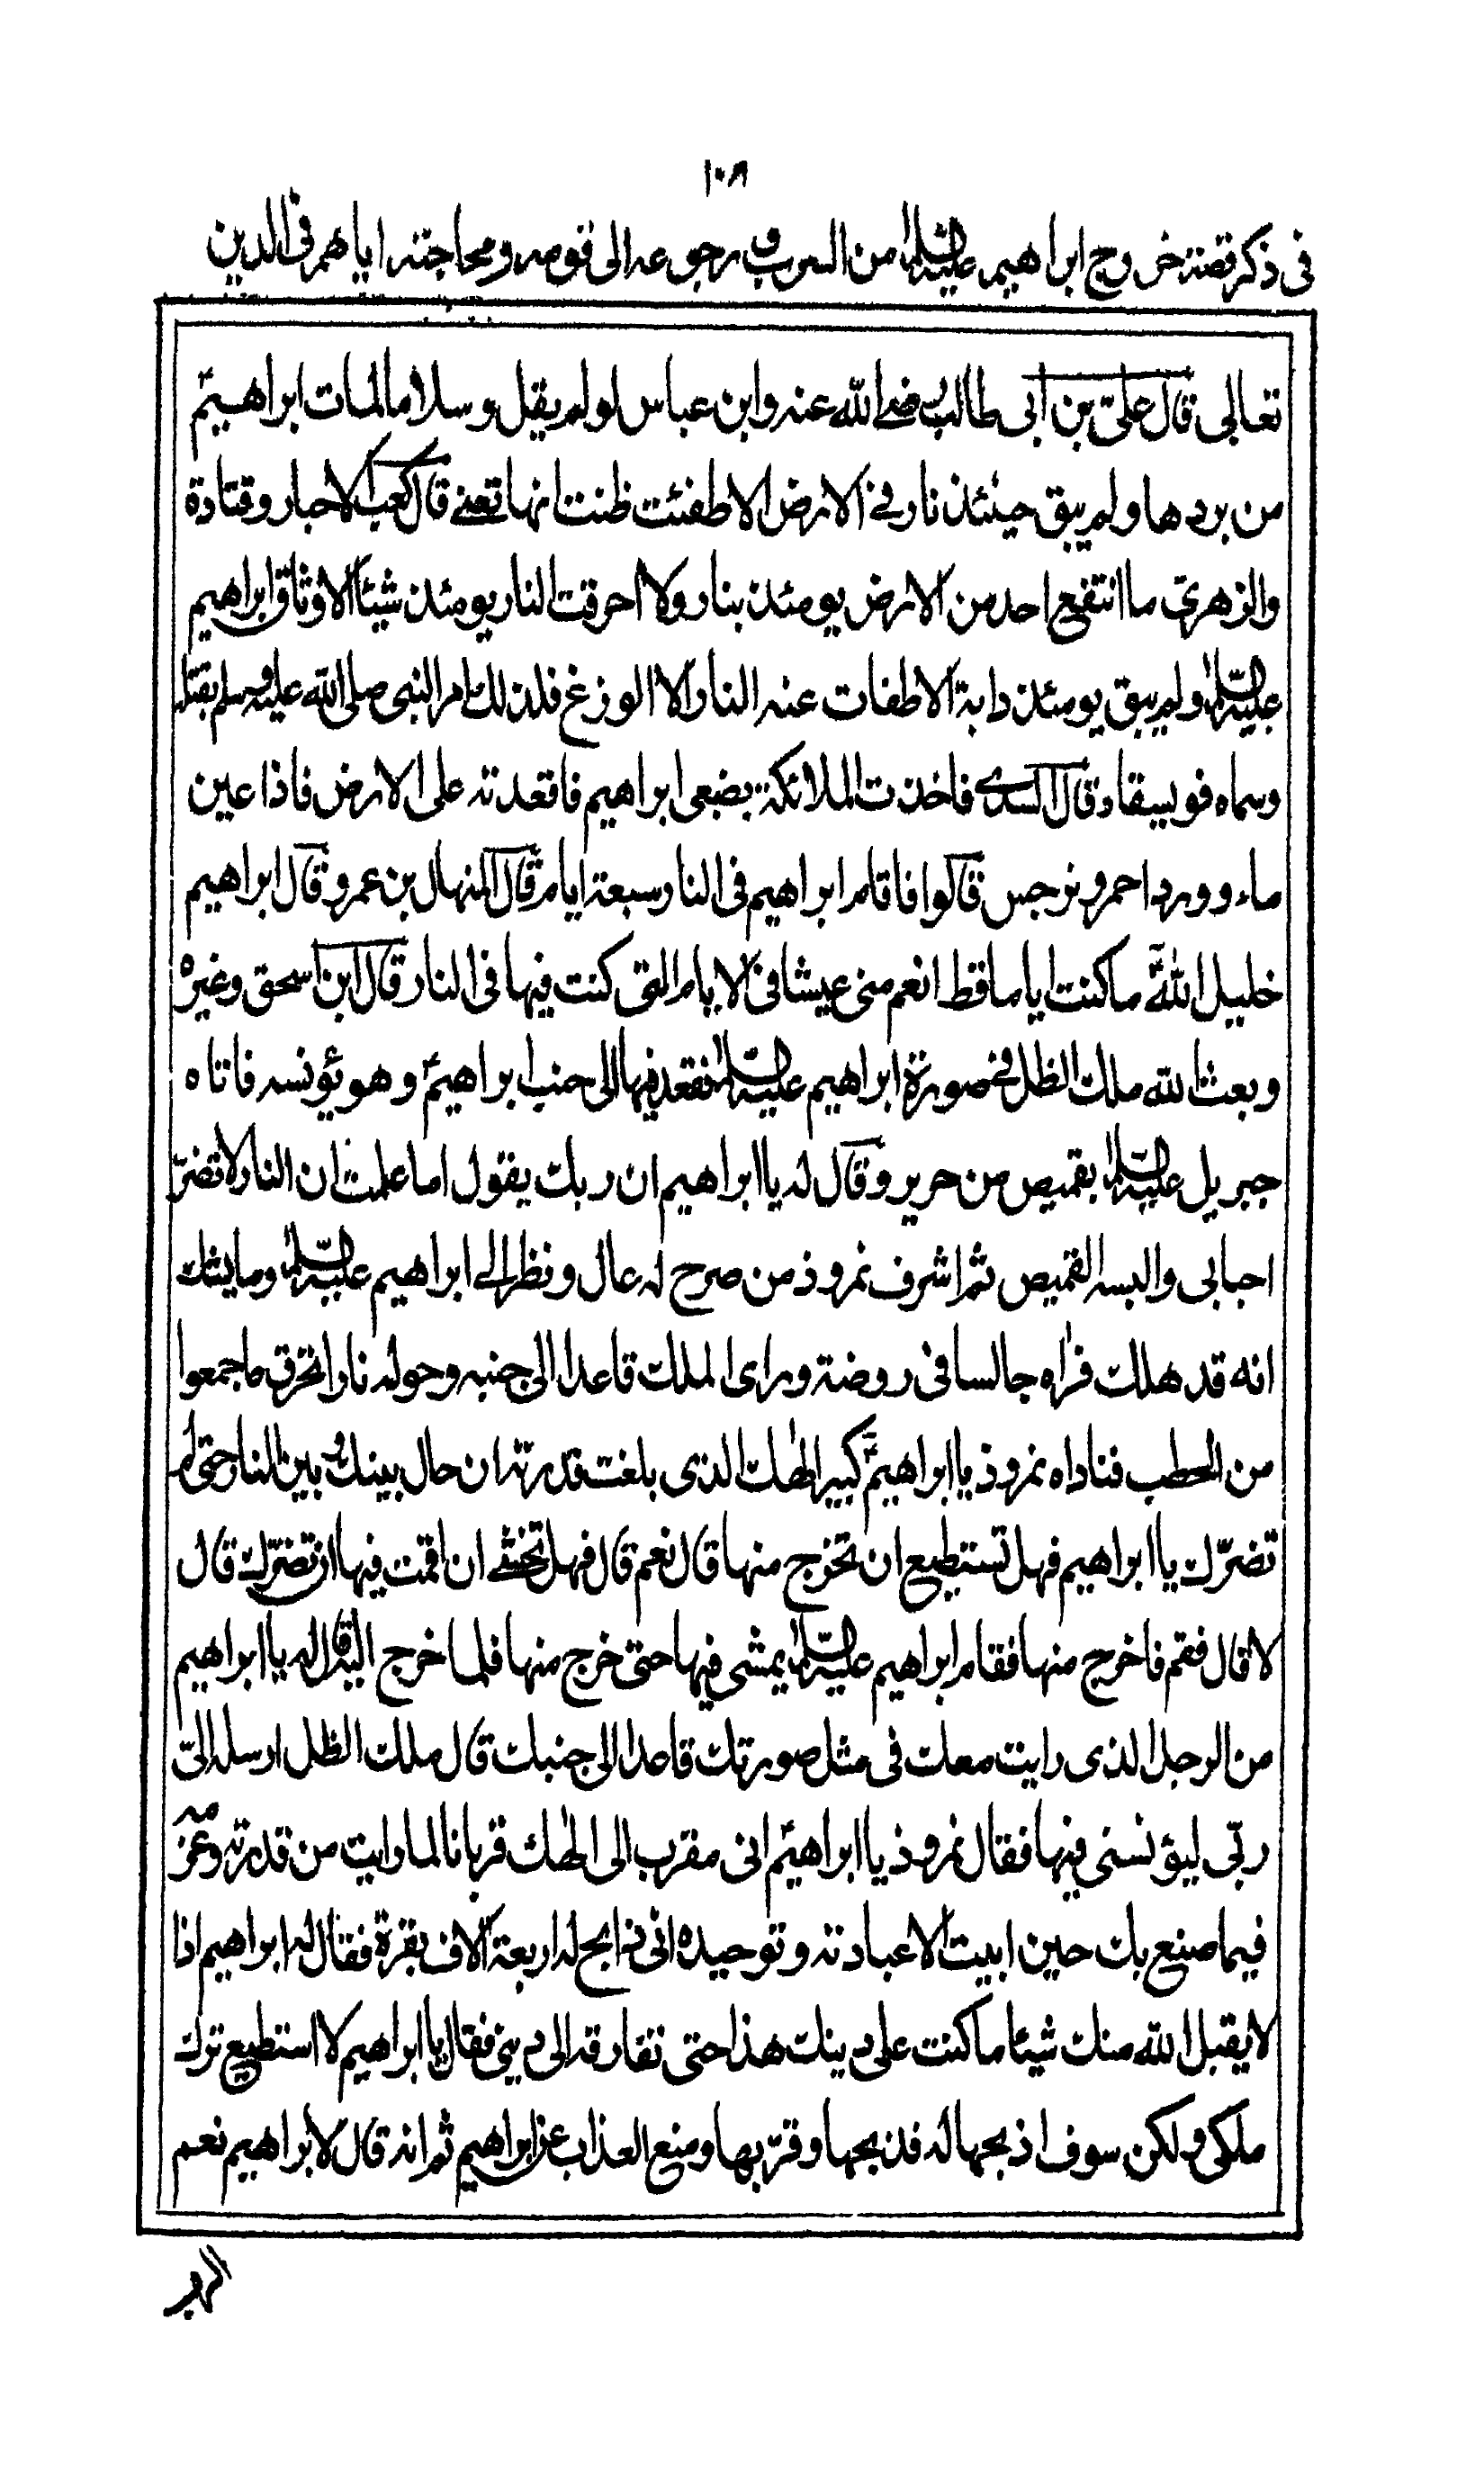 ١٠٨
فى ذكر قصة خروج ابراهيم عليه السلام من السرب و رجوعه الى قومه و محاجته اياهم فى الدين
تعالى قال على بن ابى طالب رضى الله عنه وابن عباس لو لم يقل وسلاما لمات ابراهيم
من بردها ولم يبق حينئذ نار فى الارض الا طفئت ظنت انها تعنى قال كعب الاحبار وقتادة
والزهرى ما انتفع احد من الارض يومئذ بنار ولا احرقت النار يومئذ شيئا الا وثاق ابراهيم
عليه السلام ولم يبق يومئذ دابة الا طفات عنه النار الا الوزغ فلذلك امر النبى صلى الله عليه وسلم بقتله
وسماه فويسقا وقال السدى فاخذت الملائكة بضبعى ابراهيم فاقعدته على الارض فاذا عين
ماء وورد احمر ونرجس قالوا فاقام ابراهيم فى النار سبعة ايام قال المنهال بن عمرو قال ابراهيم
خليل الله ما كنت اياما قط انعم منى عيشا فى الايام التى كنت فيها فى النار قال ابن اسحق وغيره
وبعث الله ملك الظل فى صورة ابراهيم عليه السلام فقعد فيها الى جنب ابراهيم وهو يؤنسه فاتاه
جبريل عليه السلام بقميص من حرير وقال له يا ابراهيم ان ربك يقول اما علمت ان النار لا تضر
احبابى والبسه القميص ثم اشرف نمروذ من صرح له عال ونظر الى ابراهيم عليه السلام وما يشك
انه قد هلك فراه جالسا فى روضة وراى الملك قاعدا الى جنبه وحوله نارا تحرق ما جمعوا
من الحطب فناداه نمروذ يا ابراهيم كبير الهك الذى بلغت قدرته ان حال بينك وبين النار حتى لم
تضرك يا ابراهيم فهل تستطيع ان تخرج منها قال نعم قال فهل تخشى ان اقمت فيها ان تضرك قال
لا قال فقم فاخرج منها فقام ابراهيم عليه السلام يمشى فيها حتى خرج منها فلما خرج اليه قال له يا ابراهيم
من الرجل الذى رايت معك فى مثل صورتك قاعدا الى جنبك قال ملك الظل ارسله الى
ربى ليؤنسنى فيها فقال نمروذ يا ابراهيم انى مقرب الى الهك قربانا لما رايت من قدرته وعزمه
فيما صنع بك حين ابيت الا عبادته وتوحيده انى ذابح له اربعة آلاف بقرة فقال له ابراهيم اذا
لا يقبل الله منك شيئا ما كنت على دينك هذا حتى تفارقه الى دينى فقال يا ابراهيم لا استطيع ترك
ملكى ولكن سوف اذبحها له فذبحها وقربها ومنع العذاب عن ابراهيم ثم انه قال لابراهيم نعم